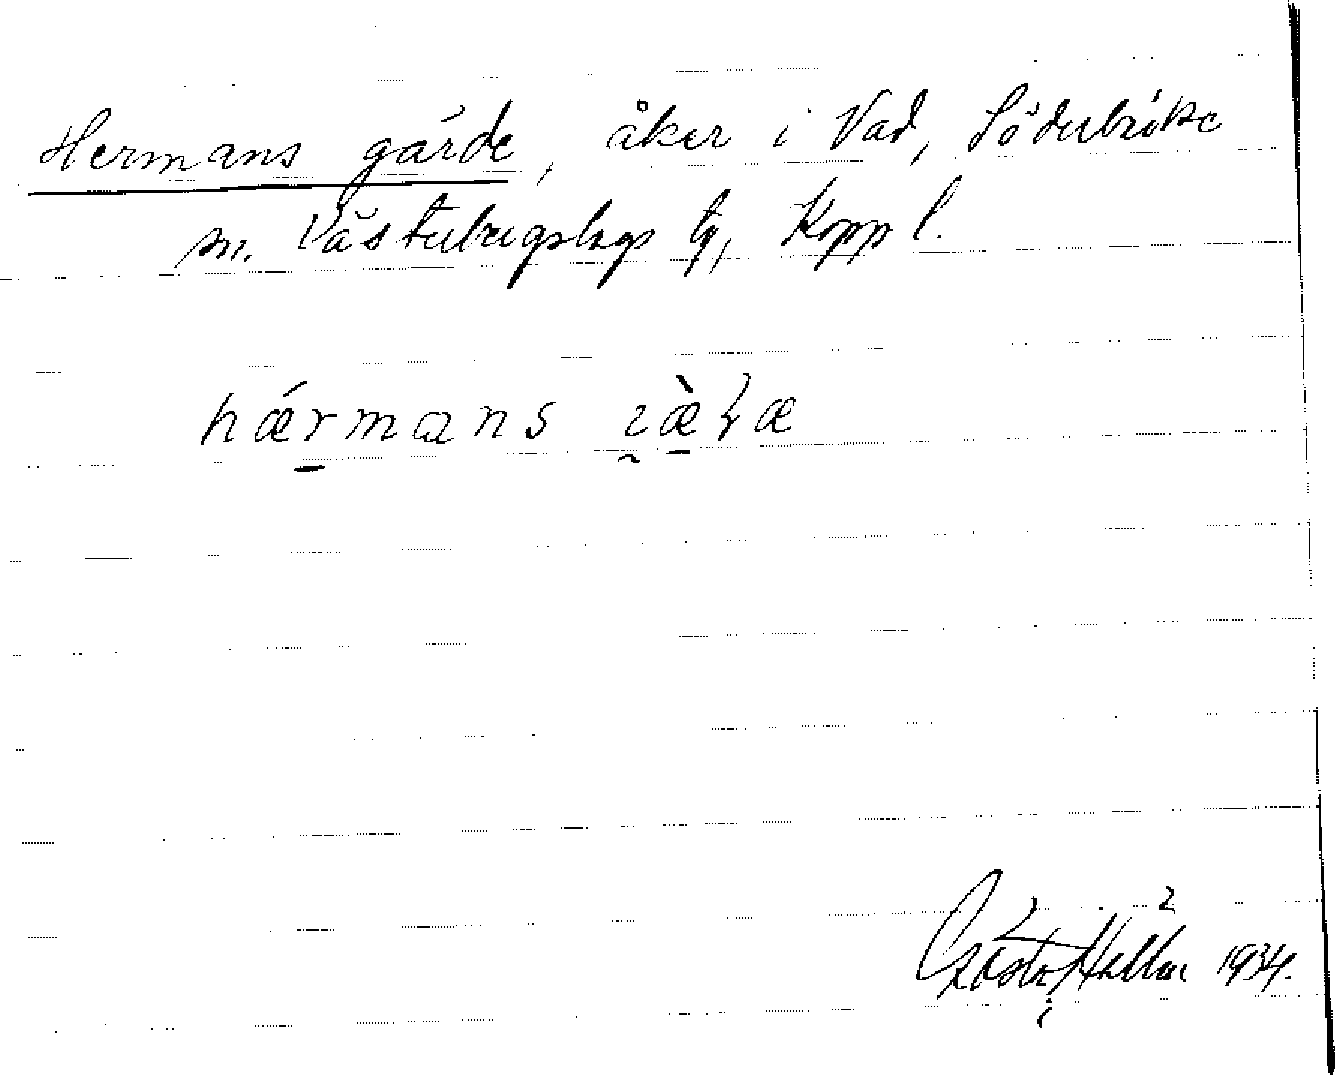 Hermans gärde, åker i Vad, Söderbärke
sn. Västerbergslags tg, Kopp l.
härmans
Gösta 1934.